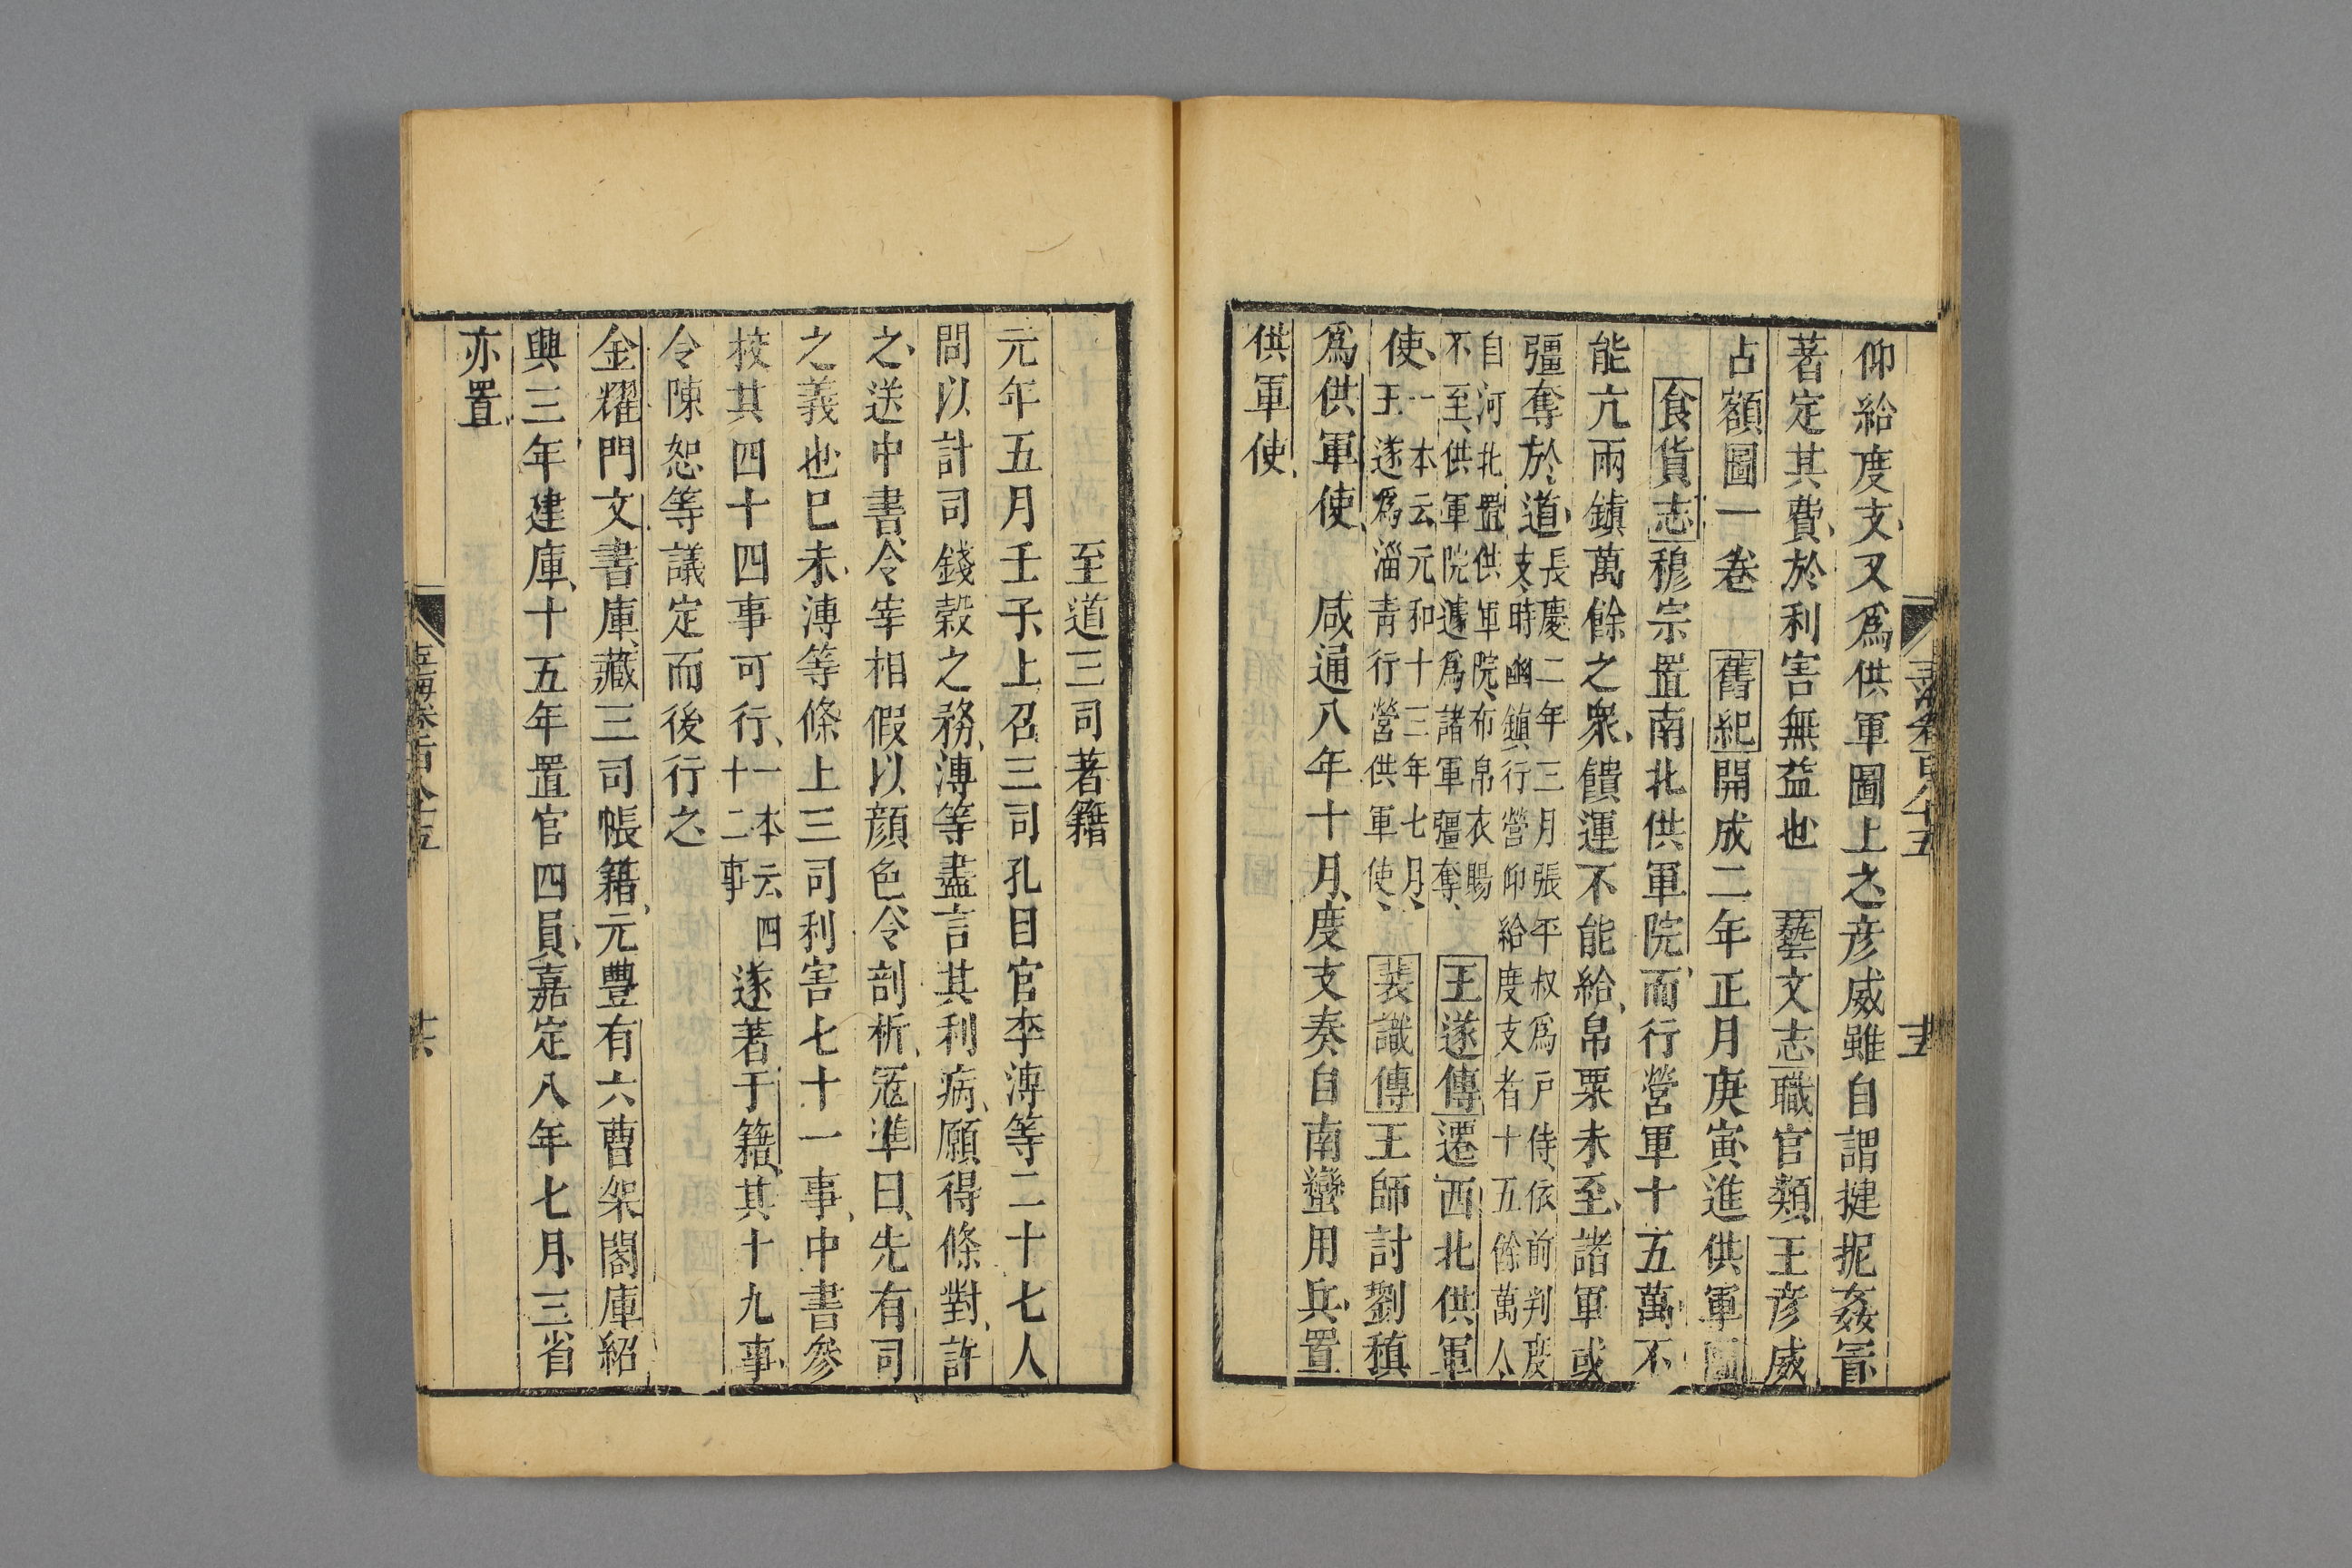 仰給度支又爲供軍圖上之彦威雖自謂揵抳姦冒
著定其費於利害無益也 藝文志職官類王彦威
占額圖一卷 舊紀開成二年正月庚寅進供軍圖
食貨志穆宗置南北供軍院而行營軍十五萬不
能亢兩鎮萬餘之衆饋運不能給帛粟未至諸軍或
彊奪於道長慶二年三月張平叔爲户侍依前判度
支時幽鎮行營仰給度支者十五餘萬人
自河北置供軍院布帛衣賜
不至供軍院遽爲諸軍彊奪 王遂傳遷西北供軍
使一本云元和十三年七月
王遂爲淄青行營供軍使 裴識傳王師討劉稹
爲供軍使 咸通八年十月度支奏自南蠻用兵置
供軍使
玉海卷百八十五
十五
至道三司著籍
元年五月壬子上召三司孔目官李溥等二十七人
問以計司錢穀之務溥等盡言其利病願得條對許
之送中書令宰相假以顔色令剖析冦準曰先有司
之義也巳未溥等條上三司利害七十一事中書參
校其四十四事可行一本云四
十二事 遂著于籍其十九事
令陳恕等議定而後行之
金耀門文書庫藏三司帳籍元豐有六曹架閣庫紹
興三年建庫十五年置官四員嘉定八年七月三省
亦置
玉海卷百八十五
十六